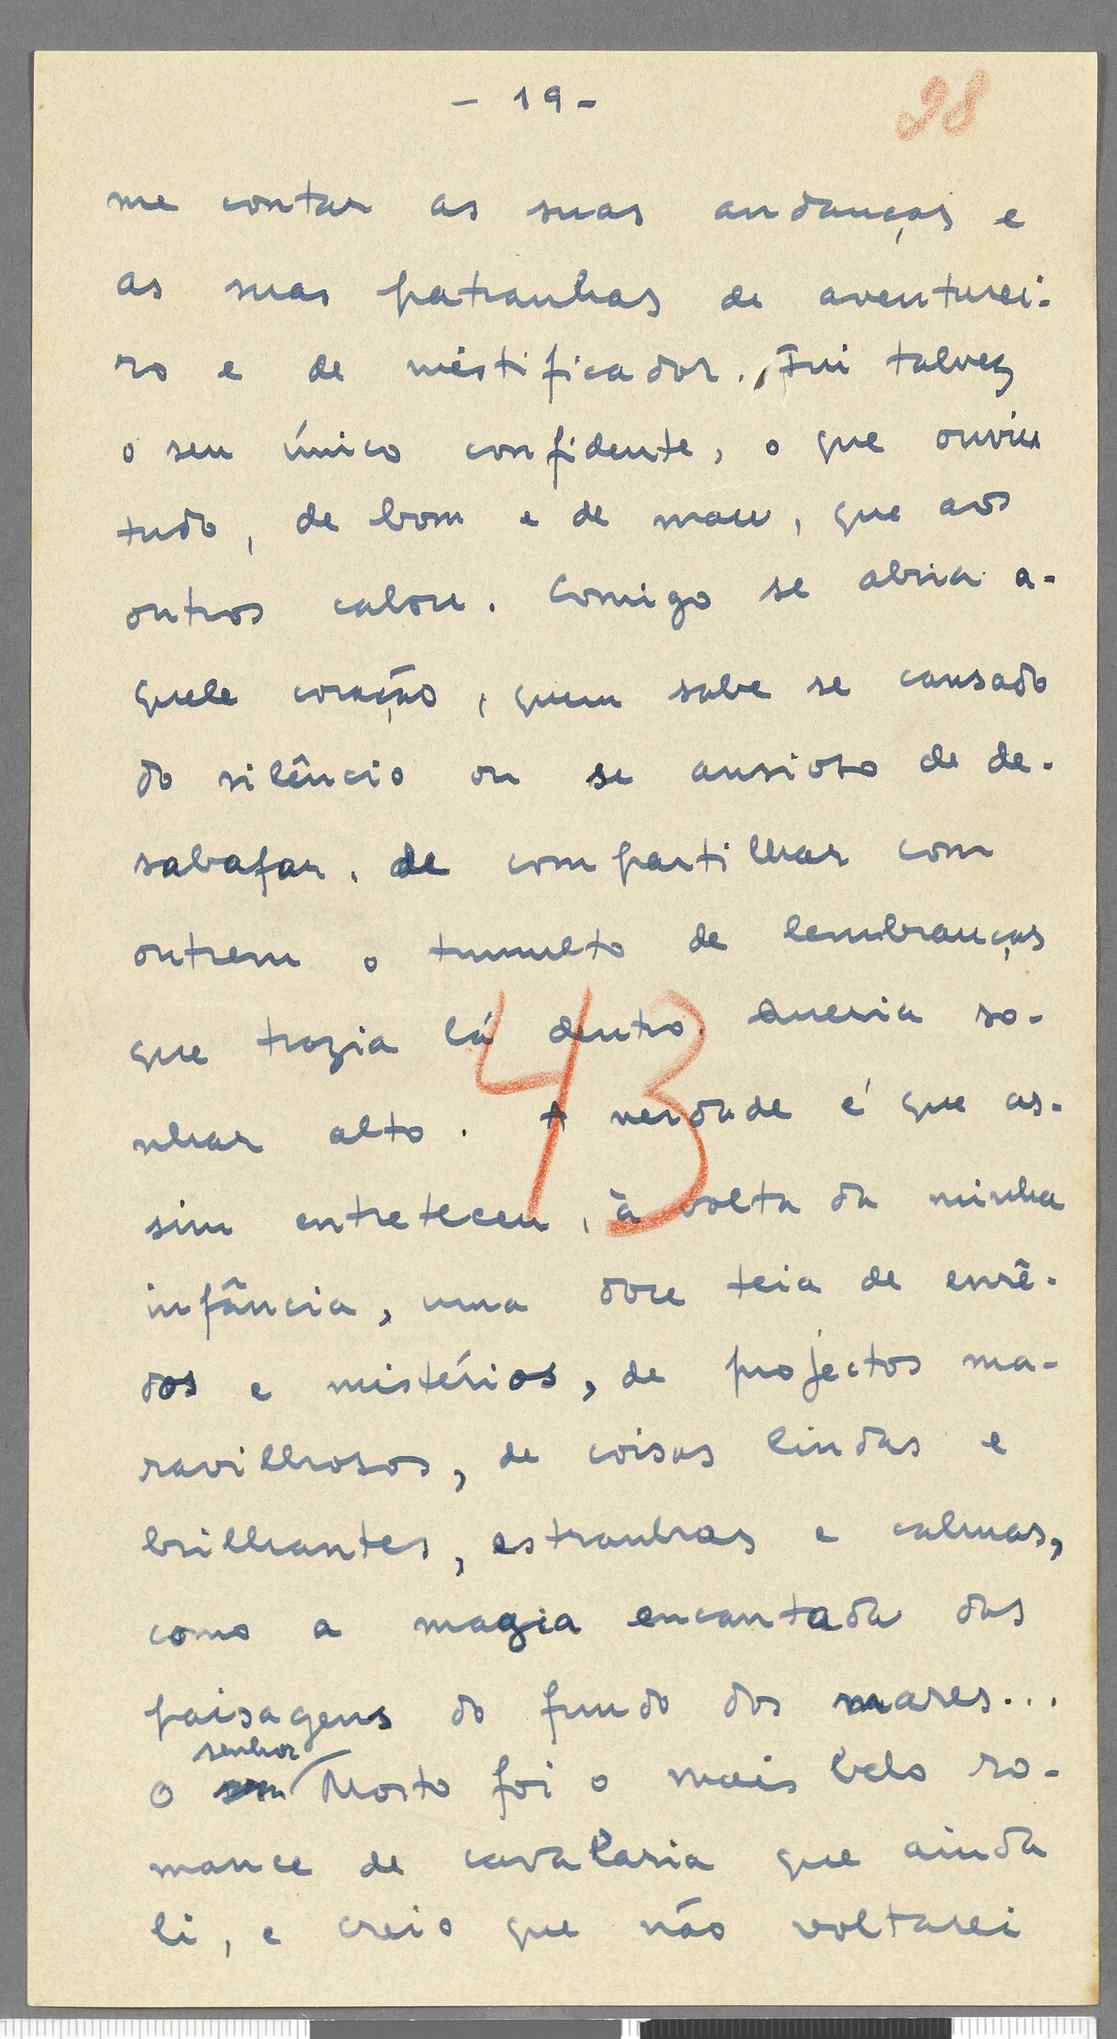 - 19 -
28
me contar as suas andanças e
as suas patranhas de aventurei-
ro e de mistificador. Fui talvez
o seu único confidente, o que ouviu
tudo, de bom e de mau, que aos
outros calou. Comigo se abria a-
quele coração, quem sabe se cansado
do silêncio ou se ansioso de de-
sabafar, de compartilhar com
outrem o tumulto de lembranças
que trazia lá dentro. Queria so-
nhar alto. A verdade é que as-
43
sim entreteceu, à volta da minha
infância, uma doce teia de enrê-
dos e mistérios, de projectos ma-
ravilhosos, de coisas lindas e
brilhantes, estranhas e calmas,
como a magia encantada das
paisagens do fundo dos mares...
senhor
O Mosto foi o mais belo ro-
mance de cavalaria que ainda
li, e creio que não voltarei